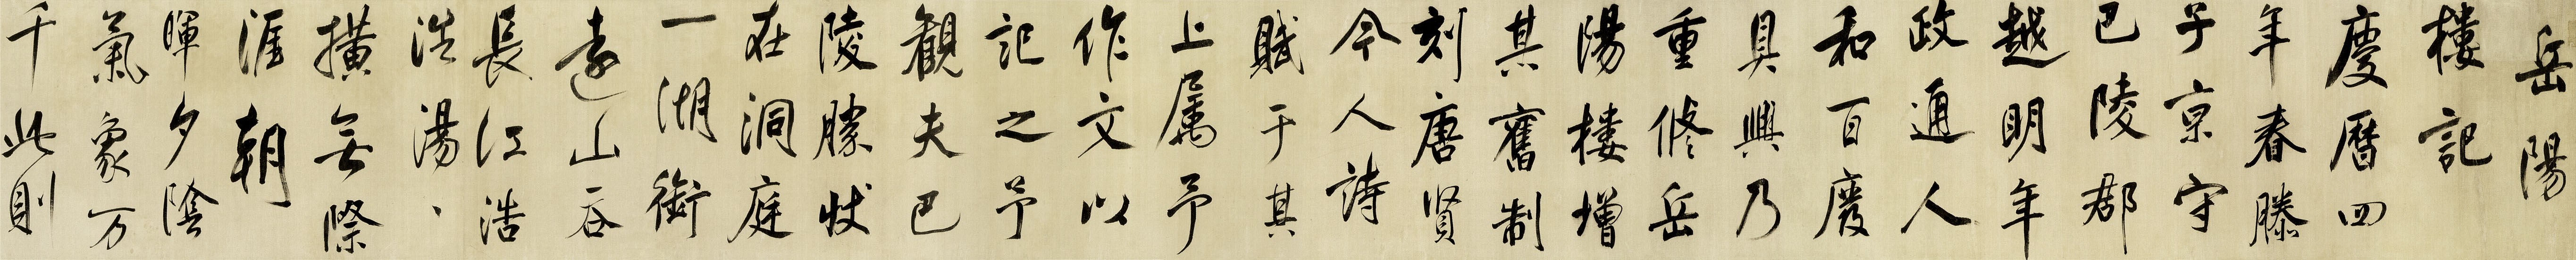 岳陽
樓記
慶曆四
年春滕
子京守
巴陵郡
越明年
政通人
和百廢
具興乃
重修岳
陽樓增
其舊制
刻唐賢
今人詩
賦于其
上属予
作文以
記之予
観夫巴
陵勝狀
在洞庭
一湖銜
遠山吞
長江浩
浩湯、
橫無際
涯朝
暉夕陰
氣象万
千此則